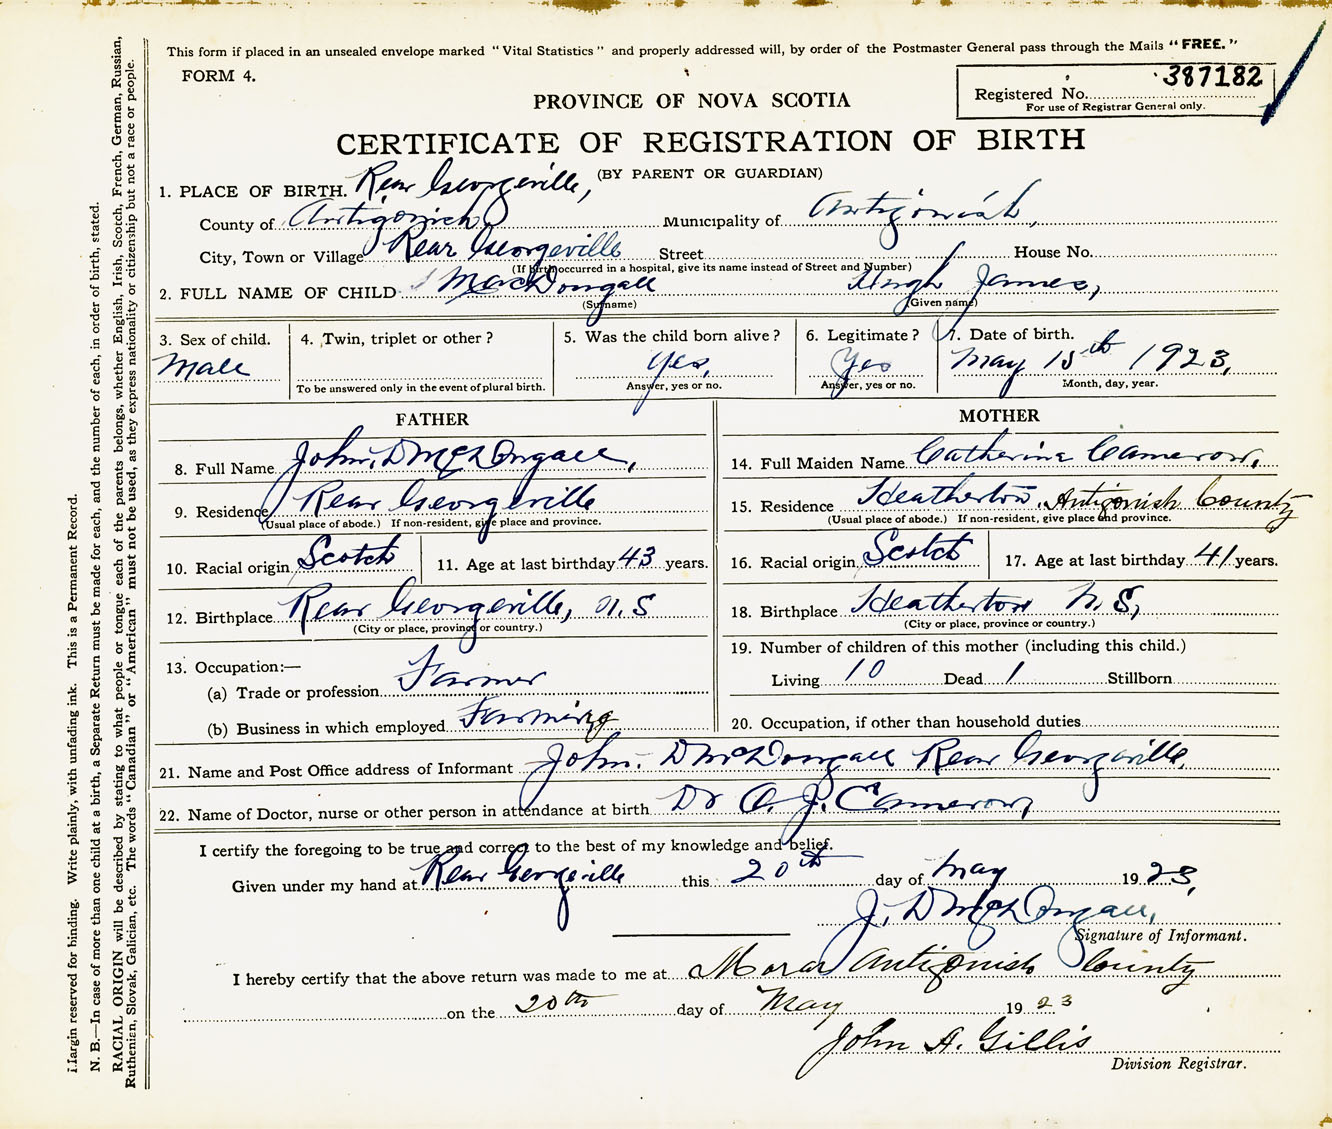 This form if placed in an unsealed envelope marked "Vital Statistics" and properly addressed will, by order of the Postmaster General pass through the Mails "FREE."
FORM 4.
387182
Registered No.
For use of Registrar General only.
PROVINCE OF NOVA SCOTIA
CERTIFICATE OF REGISTRATION OF BIRTH
(BY PARENT OR GUARDIAN)
1. PLACE OF BIRTH. Rear Georgeville,
County of Antigonish Municipality of Antigonish,
City, Town or Village Rear Georgeville Street House No.
(If birth occurred in a hospital, give its name instead of Street and Number)
2. FULL NAME OF CHILD MacDougall Hugh James,
(Surname) (Given name)
3. Sex of child. 4. Twin, triplet or other? 5. Was the child born alive? 6. Legitimate? 7. Date of birth.
Male Yes, Yes May 15th 1923,
To be answered only in the event of plural birth. Answer, yes or no. Answer, yes or no. Month, day, year.
FATHER
8. Full Name John, D McDougall,
9. Residence Rear Georgeville
(Usual place of abode.) If non-resident, give place and province.
10. Racial origin Scotch 11. Age at last birthday 43 years.
12. Birthplace Rear Georgeville, N.S
(City or place, province or country.)
13. Occupation:—
(a) Trade or profession Farmer
(b) Business in which employed Farming
MOTHER
14. Full Maiden Name Catherine Cameron,
15. Residence Heatherton Antigonish County
(Usual place of abode.) If non-resident, give place and province.
16. Racial origin Scotch 17. Age at last birthday 41 years.
18. Birthplace Heatherton N.S,
(City or place, province or country.)
19. Number of children of this mother (including this child.)
Living 10 Dead 1 Stillborn
20. Occupation, if other than household duties
21. Name and Post Office address of Informant John. D McDougall Rear Georgeville,
22. Name of Doctor, nurse or other person in attendance at birth Dr O. J. Cameron,
I certify the foregoing to be true and correct to the best of my knowledge and belief.
Given under my hand at Rear Georgeville this 20th day of May 1923,
J. D McDougall,
Signature of Informant.
I hereby certify that the above return was made to me at Morar Antigonish County
on the 20th day of May 1923
John A. Gillis
Division Registrar.
Margin reserved for binding. Write plainly, with unfading ink. This is a Permanent Record.
N. B.—In case of more than one child at a birth, a Separate Return must be made for each, and the number of each, in order of birth, stated.
RACIAL ORIGIN will be described by stating to what people or tongue each of the parents belongs, whether English, Irish, Scotch, French, German, Russian,
Ruthenien, Slovak, Galician, etc. The words "Canadian" or "American" must not be used, as they express nationality or citizenship but not a race or people.